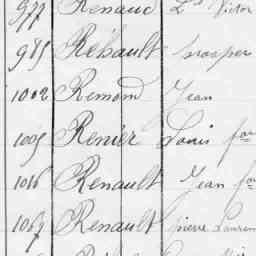 977 Renaud Ls Victor
985 Rébault prosper
1002 Remond Jean
1005 Renier Louis
1016 Renault Jean
1067 Renault pierre Lauren